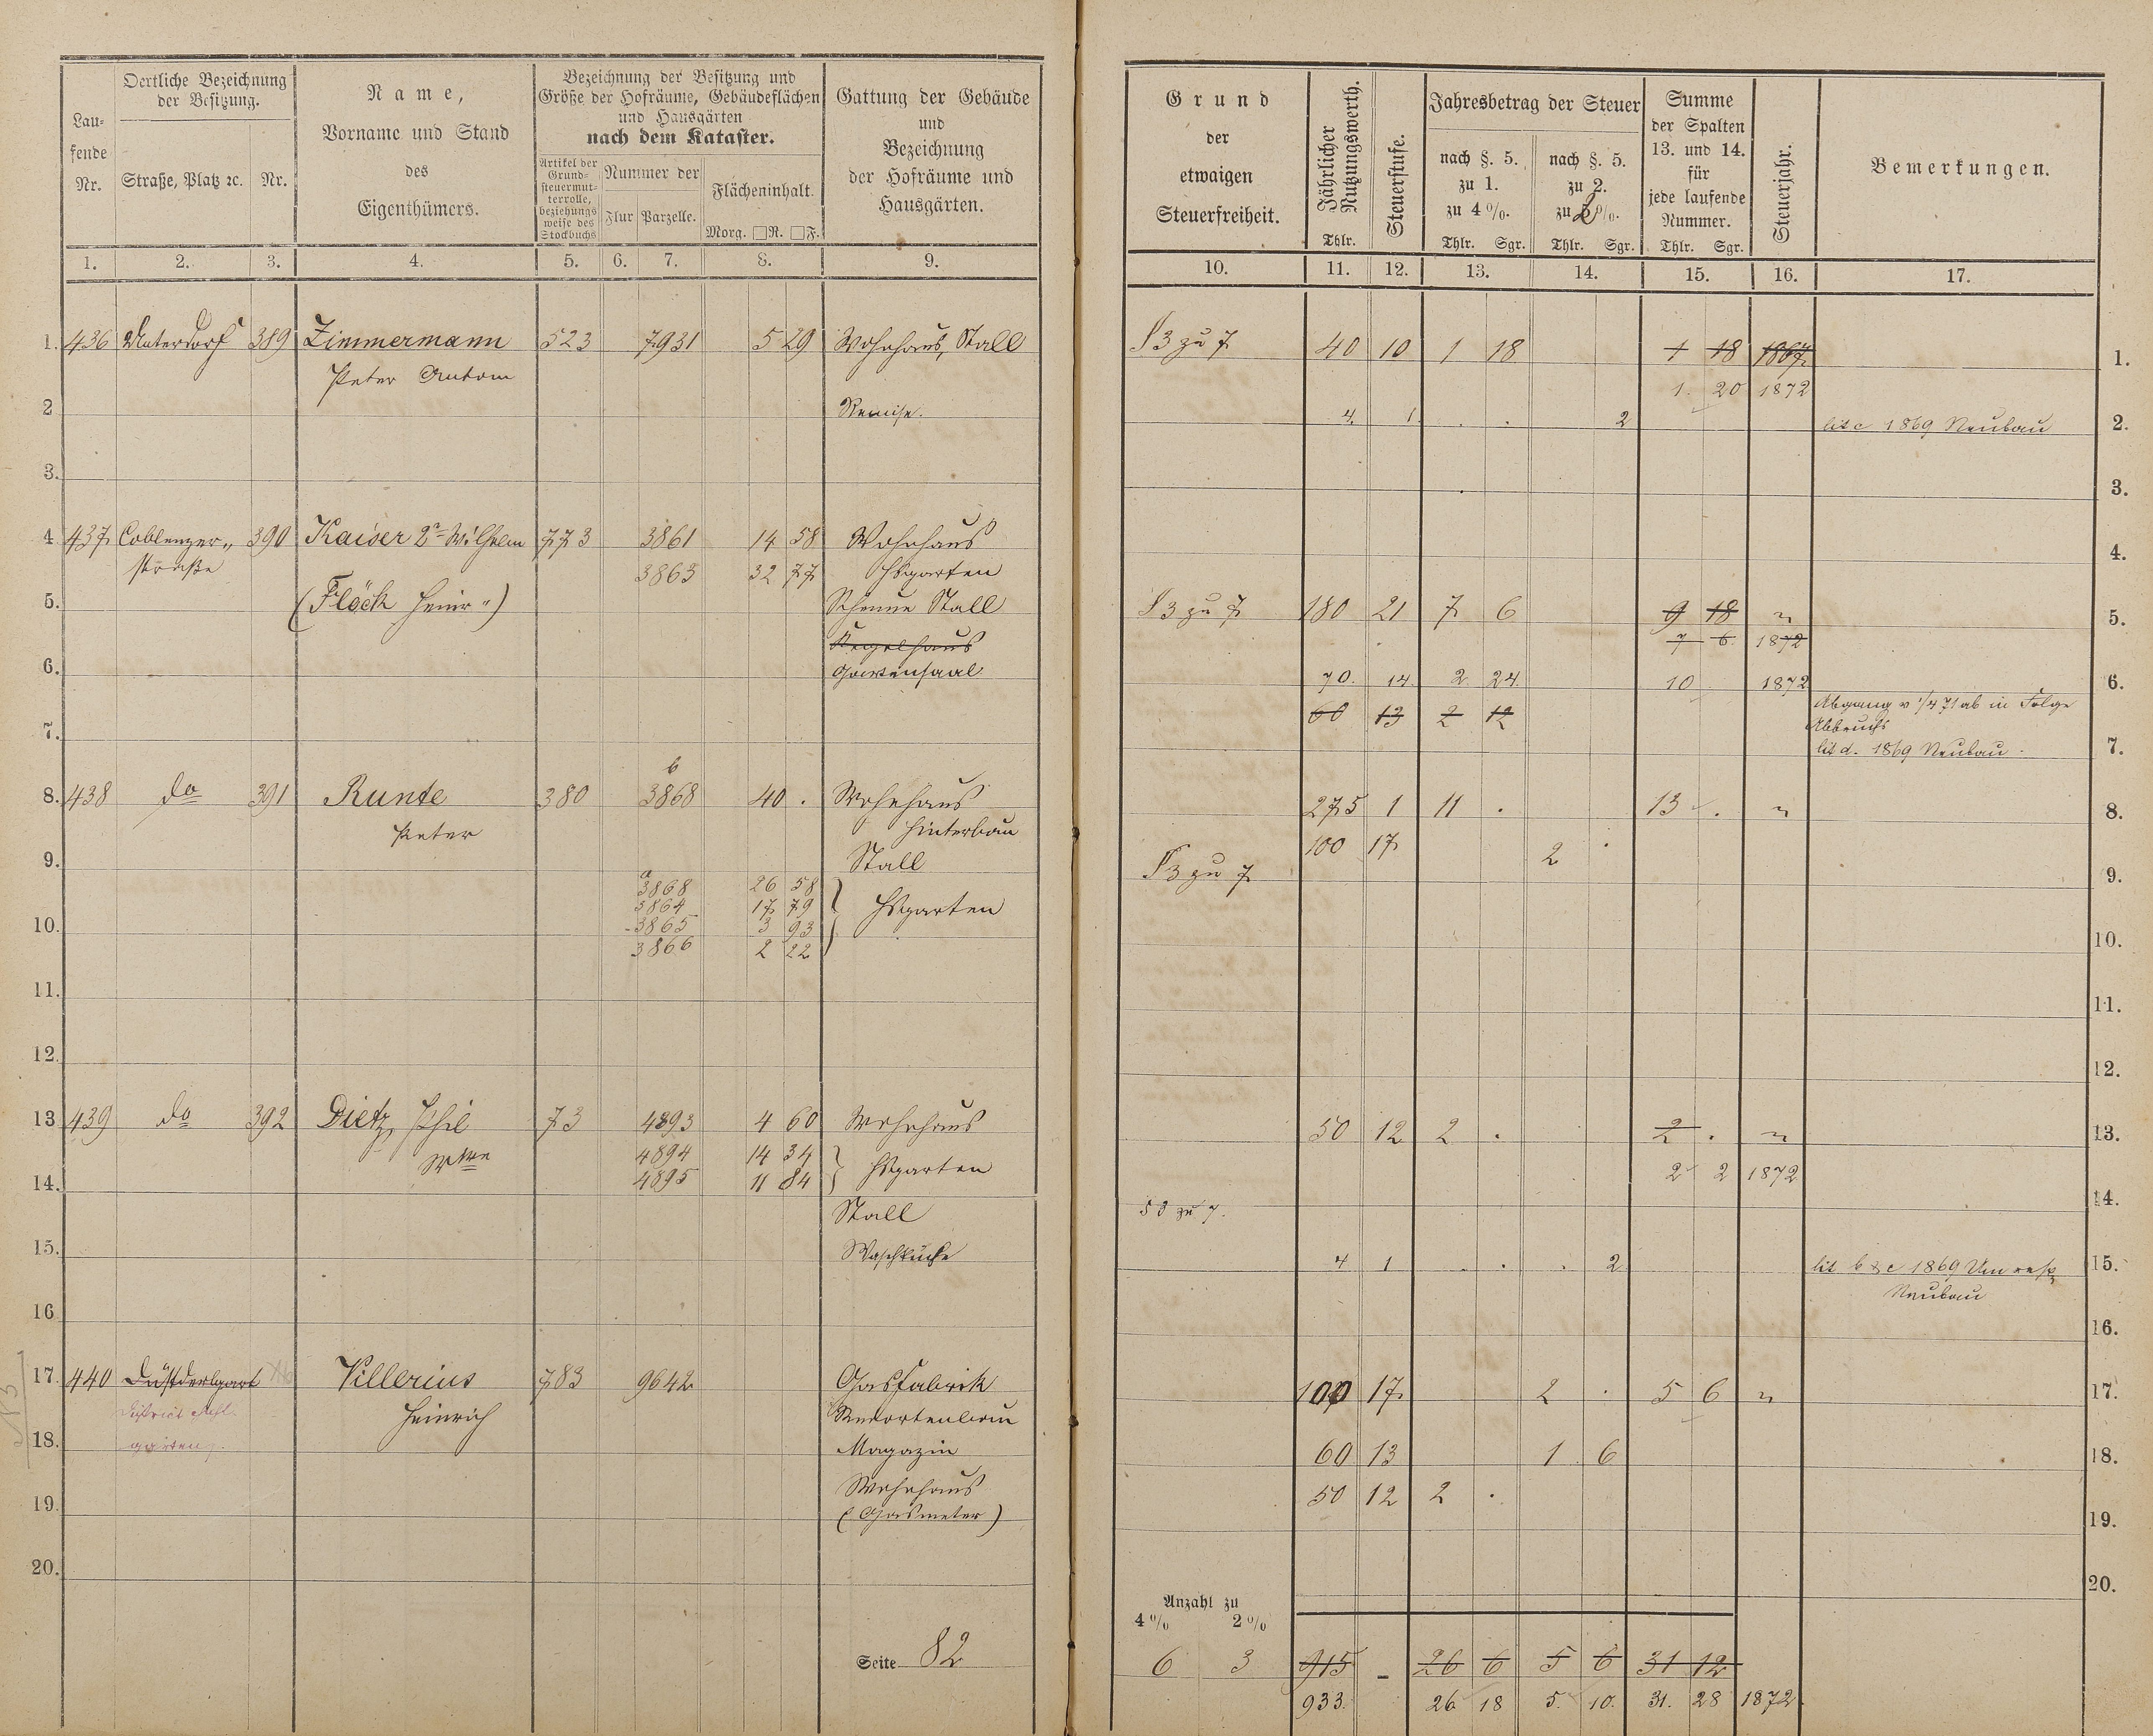 Lau-
fende
Nr.
Oertliche Bezeichnung
der Besitzung.
Straße, Platz ꝛc. Nr.
Name,
Vorname und Stand
des
Eigenthümers.
Bezeichnung der Besitzung und
Größe der Hofräume, Gebäudeflächen
und Hausgärten
nach dem Kataster.
Artikel der
Grund-
steuermut-
terrolle,
beziehungs
weise des
Stockbuchs
Nummer der
Flur Parzelle.
Flächeninhalt.
Morg. □R. □F.
Gattung der Gebäude
und
Bezeichnung
der Hofräume und
Hausgärten.
1. 2. 3. 4. 5. 6. 7. 8. 9.
1. 436 Unterdorf 389 Zimmermann 523 7931 5 29 Wohnhaus, Stall
Peter Anton
2 Remise.
3.
4 437 Coblenzer„ 390 Kaiser 2r Wilhelm 773 3861 14 58 Wohnhaus
straße 3863 32 77 Hsgarten
5. (Flöck Heinr„) Scheune Stall
Kegelhaus
6. Gartensaal
7.
b
8. 438 do 391 Runte 380 3868 40 . Wohnhaus
Peter Hinterbau
9. Stall
a
3868 26 58
3864 17 79 Hsgarten
10. 3865 3 93
3866 2 22
11.
12.
13 439 do 392 Dietz, Phil 73 4893 4 60 Wohnhaus
Wwe 4894 14 34 Hsgarten
14. 4895 11 84
Stall
15. Waschküche
16
17. 440 783 9642 Gasfabrik
Villerius
Heinrich Retortenbau
18. Magazin
garten
Wohnhaus
19. (Gasmeter)
20.
Seite 82
Grund
der
etwaigen
Steuerfreiheit.
Jährlicher
Nutzungswerth.
Thlr.
Steuerstufe.
Jahresbetrag der Steuer
nach §. 5.
zu 1.
zu 4 %.
Thlr. Sgr.
nach §. 5.
zu 2.
zu 2 %.
Thlr. Sgr.
Summe
der Spalten
13. und 14.
für
jede laufende
Nummer.
Thlr. Sgr.
Steuerjahr.
Bemerkungen.
10. 11. 12. 13. 14. 15. 16. 17.
§ 3 zu 7 40 10 1 18 1 18 1867 1.
1. 20 1872
4. 1. . . 2 lit c 1869 Neubau 2.
3.
4.
§ 3 zu 7 180 21 7 6 9 18 „ 5.
7 6 1872
70. 14. 2 24. 10 1872 6.
60 13 2 12 Abgang v 1/4 71 ab in Folge
Abbruchs
lit d. 1869 Neubau. 7.
275 1 11 . 13 . „ 8.
100 17 2 .
§ 3 zu 7 9.
10.
11.
12.
50 12 2 . 2 . „ 13.
2 2 1872
zu 7. 14.
4 1 . . . 2 lit b & c 1869 Um resp 15.
Neubau
16.
100 17 2 . 5 6 „ 17.
60 13 1 6 18.
50 12 2 .
19.
20.
Anzahl zu
4 % 2 %
6 3 915 - 26 6 5 6 31 12
933. 26 18 5. 10. 31. 28 1872